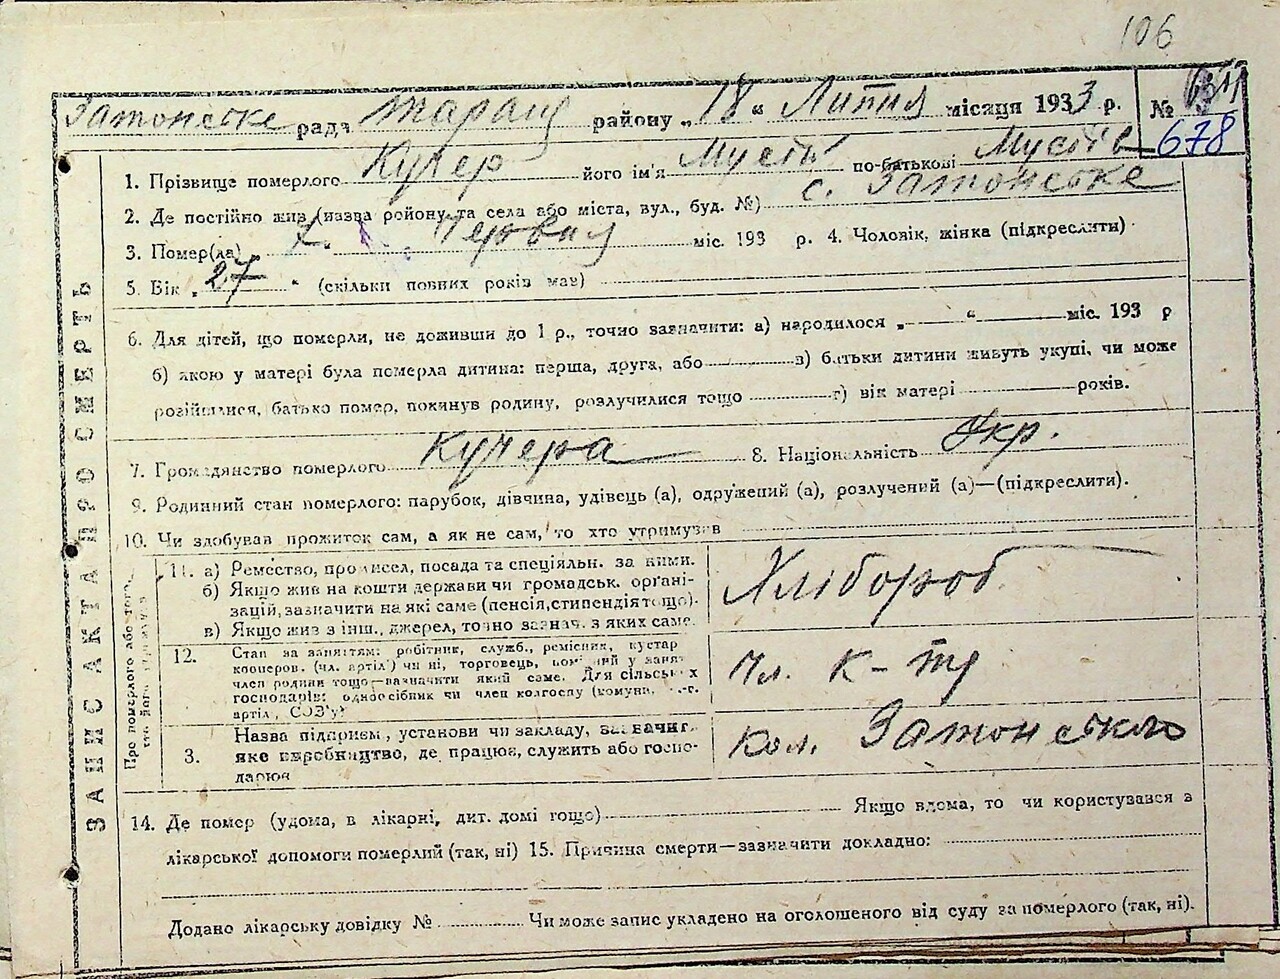 106
Затонське рада Таращ району „18“ Липня місяця 1933 р. №
678
1. Прізвище померлого Кучер його ім'я Мусій по-батькові Мусіїв
2. Де постійно жив (назва району та села або міста, вул., буд. №) с. Затонське
3. Помер(ла) Червня міс. 193 р. 4. Чоловік, жінка (підкреслити)
5. Вік „27“ (скільки повних років мав)
6. Для дітей, що померли, не доживши до 1 р., точно зазначити: а) народилося „ “ міс. 193 р
б) якою у матері була померла дитина: перша, друга, або в) батьки дитини живуть укупі, чи може
розійшлися, батько помер, покинув родину, розлучилися тощо г) вік матері років.
7. Громадянство померлого Кучера 8. Національність Укр.
9. Родинний стан померлого: парубок, дівчина, удівець (а), одружений (а), розлучений (а)—(підкреслити).
10. Чи здобував прожиток сам, а як не сам, то хто утримував
ЗАПИС АКТА ПРО СМЕРТЬ
Про померлого або того,
11. а) Ремество, промисел, посада та спеціяльн. за ними.
б) Якщо жив на кошти держави чи громадськ. органі-
зацій, зазначити на які саме (пенсія, стипендія тощо).
в) Якщо жив з інш., джерел, точно зазнач. з яких саме.
Хлібороб
12. Стан за заняттям: робітник, служб., ремісник, кустар
кооперов. (чл. артілі) чи ні, торговець, у занят
член родини тощо—зазначити який саме. Для сільськ х
господарів: одноосібник чи член колгоспу (комуна,
артіл, СОЗ'у)
Чл. К-
3. Назва підприєм, установи чи закладу, зазначит.
яке виробництво, де працює, служить або госпо-
дарює
Кол. Затонського
14. Де помер (удома, в лікарні, дит. домі тощо) Якщо вдома, то чи користувався з
лікарської допомоги померлий (так, ні) 15. Причина смерти—зазначити докладно:
Додано лікарську довідку № Чи може запис укладено на оголошеного від суду за померлого (так, ні).